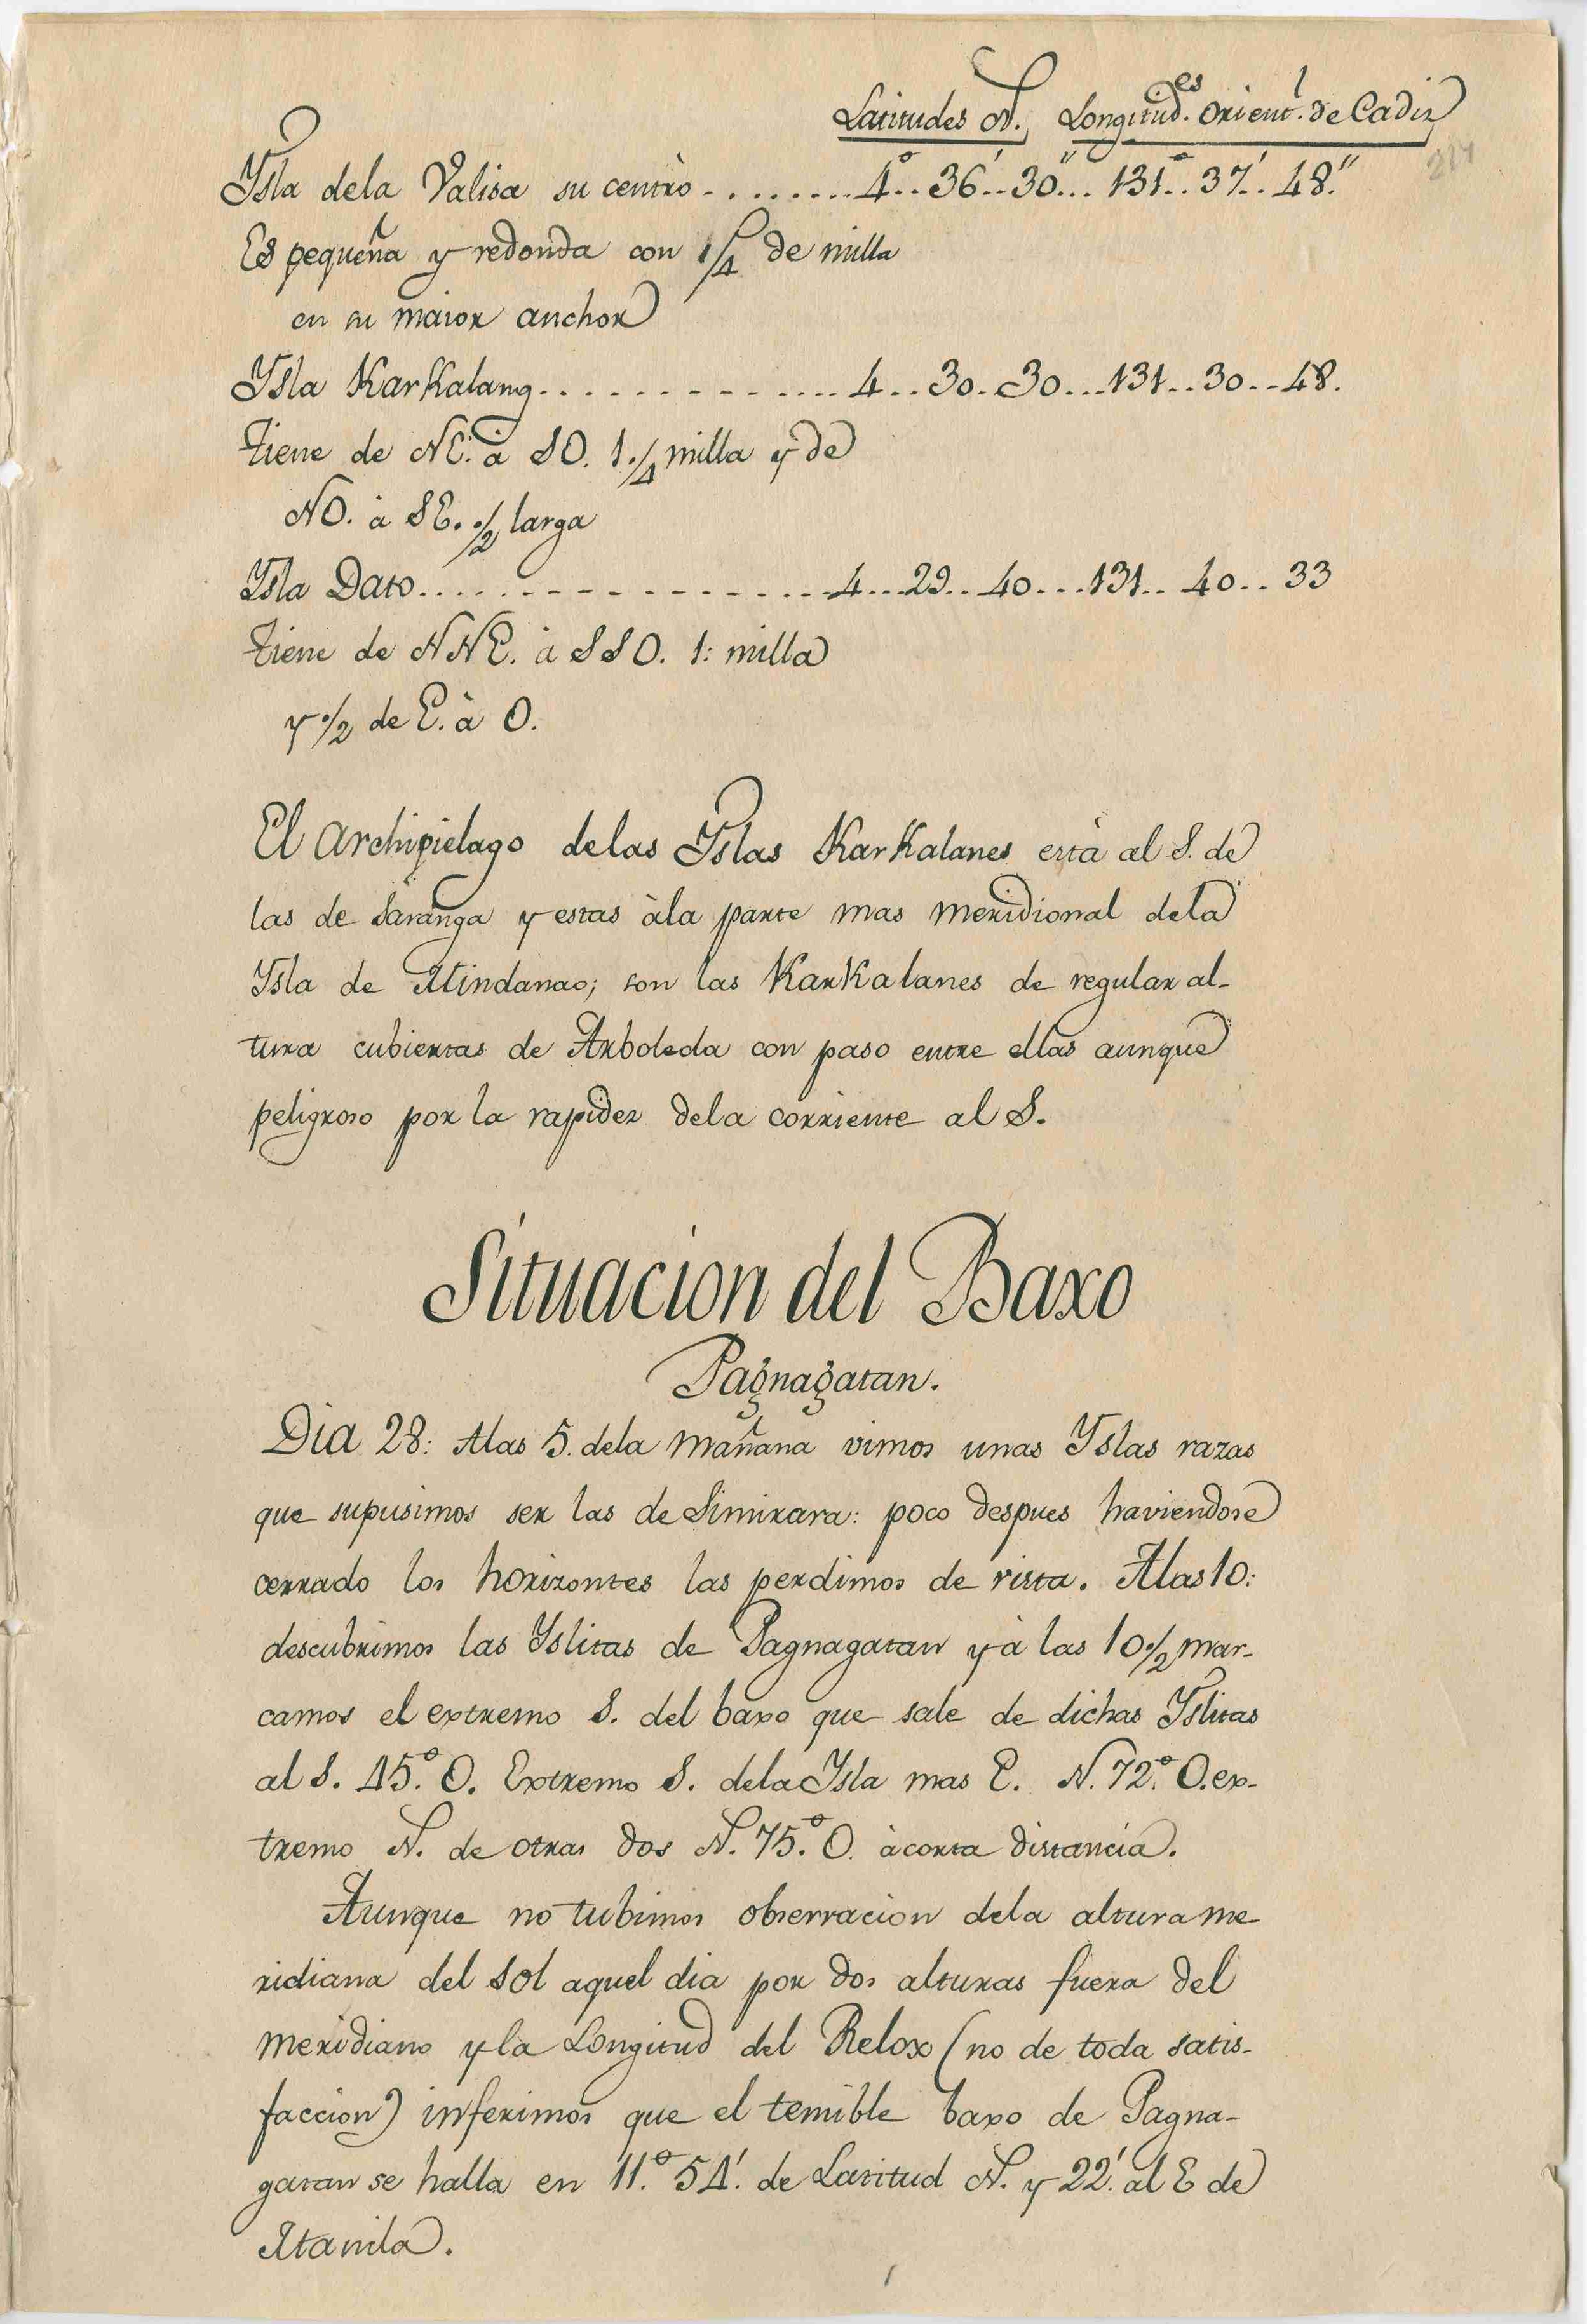 Latitudes N. Longitud.es Orient.l de Cadiz
214
Ysla dela Valisa su centro - ........ 4°.. 36'.. 30''... 131°.. 37'.. 48.''
Es pequeña y redonda con 1/4 de milla
en su maior anchor
Ysla KarKalang.............. 4.. 30.. 30... 131.. 30.. 48.
Tiene de NE. à SO. 1.1/4 milla y de
NO. à SE. 1/2 larga
Ysla Dato.................. 4... 29.. 40... 131.. 40.. 33
Tiene de NNE. à SSO. 1: milla
y 1/2 de E. à O.
El Archipielago delas Yslas KarKalanes està al S. de
las de Saranga y estas àla parte mas meridional dela
Ysla de Mindanao; son las KarKalanes de regular al-
tura cubiertas de Arboleda con paso entre ellas aunque
peligroso por la rapidez dela corriente al S.
Situacion del Baxo
Pagnagatan.
Dia 28: Alas 5. dela mañana vimos unas Yslas razas
que supusimos ser las de Simirara: poco despues haviendose
cerrado los horizontes las perdimos de vista. Alas 10:
descubrimos las Yslitas de Pagnagatan y à las 10 1/2 mar-
camos el extremo S. del baxo que sale de dichas Yslitas
al S. 45.° O. Extremo S. dela Ysla mas E. N. 72.° O. ex-
tremo N. de otras dos N. 75.° O. àcorta distancia.
Aunque no tubimos observacion dela altura me-
ridiana del sol aquel dia por dos alturas fuera del
meridiano y la Longitud del Relox (no de toda satis-
faccion) inferimos que el temible baxo de Pagna-
gatan se halla en 11.° 54'. de Latitud N. y 22'. al E de
Manila.